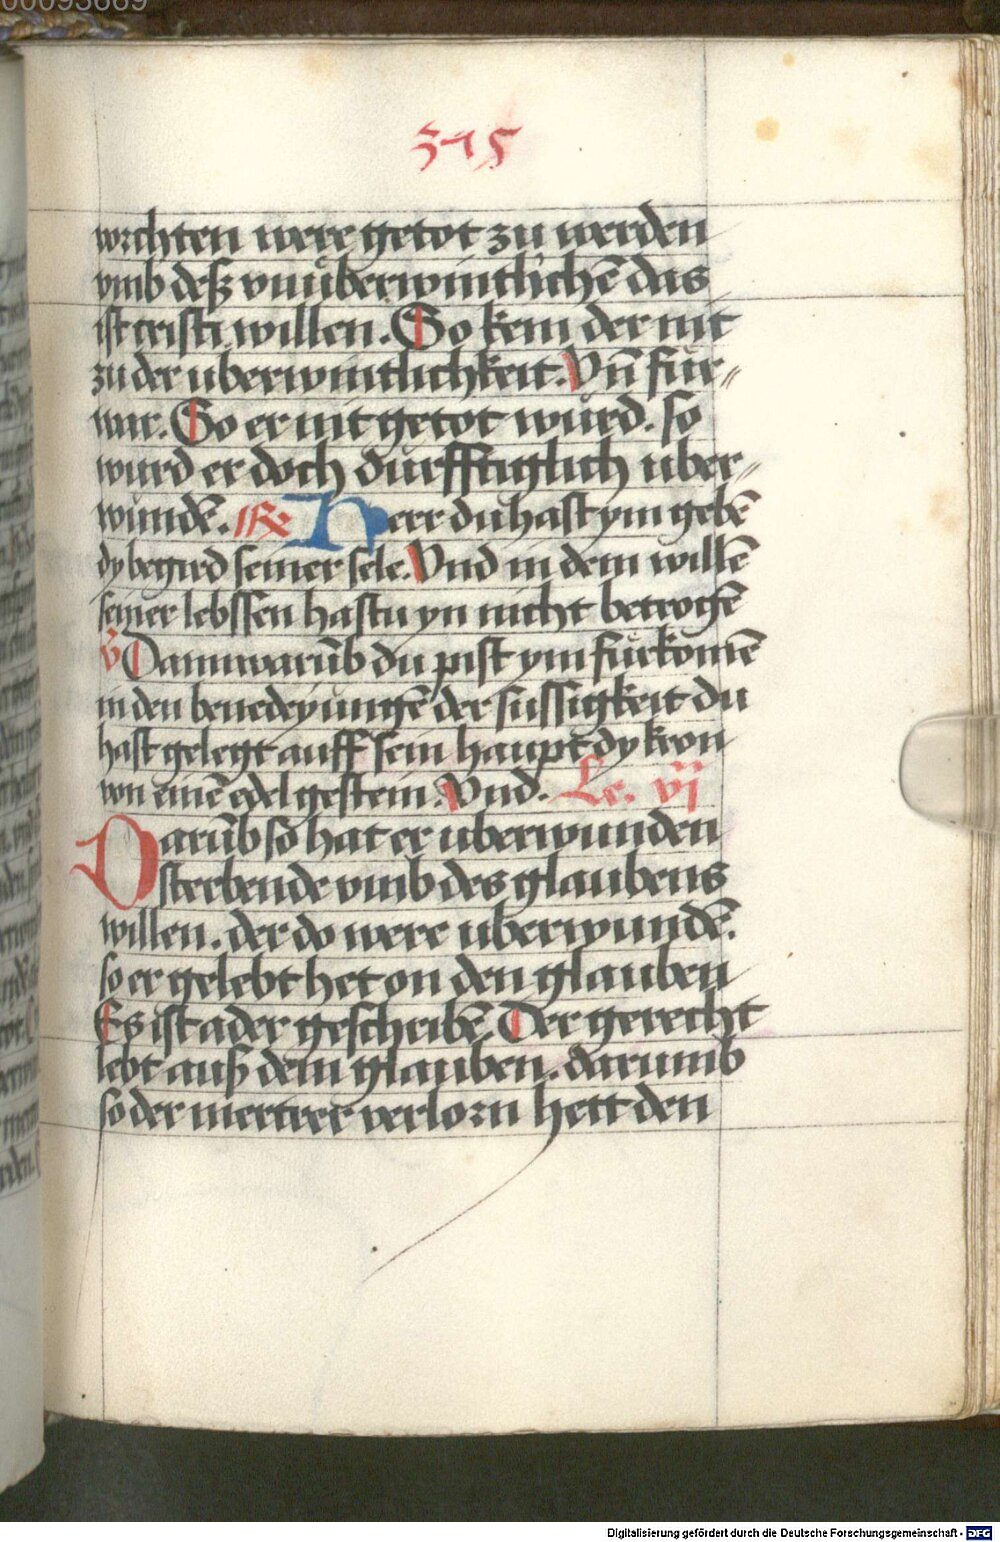 00093889
315
vorchten were getot zu werden
vmb desz vnu̇berwintlichē das
ist cristi willen. So kem der nit
zu der uberwintlichkeit. Vn̄ fur⸗
war. So er nit getot wurd. so
wurd er doch durfftiglich uber⸗
wundē. R Herr du hast ym gebē
dy begird seiner sele. Vnd in dem willē
seiner lebssen hastu yn nicht betrogē
v Dann warūb du pist ym furkomē
in den benedeyungē der sussigkeit du
hast gelegt auff sein haupt dy kron
von einē edel gestein. Vnd. Le. vj
Darūb so hat er uberwunden
sterbende vmb des glaubens
willen. der do were uberwundē.
so er gelebt het on den glauben
Es ist ader geschribē. Der gerecht
lebt ausz dem glauben. darumb
so der mertrer verlorn hett den
Digitalisierung gefördert durch die Deutsche Forschungsgemeinschaft - DFG